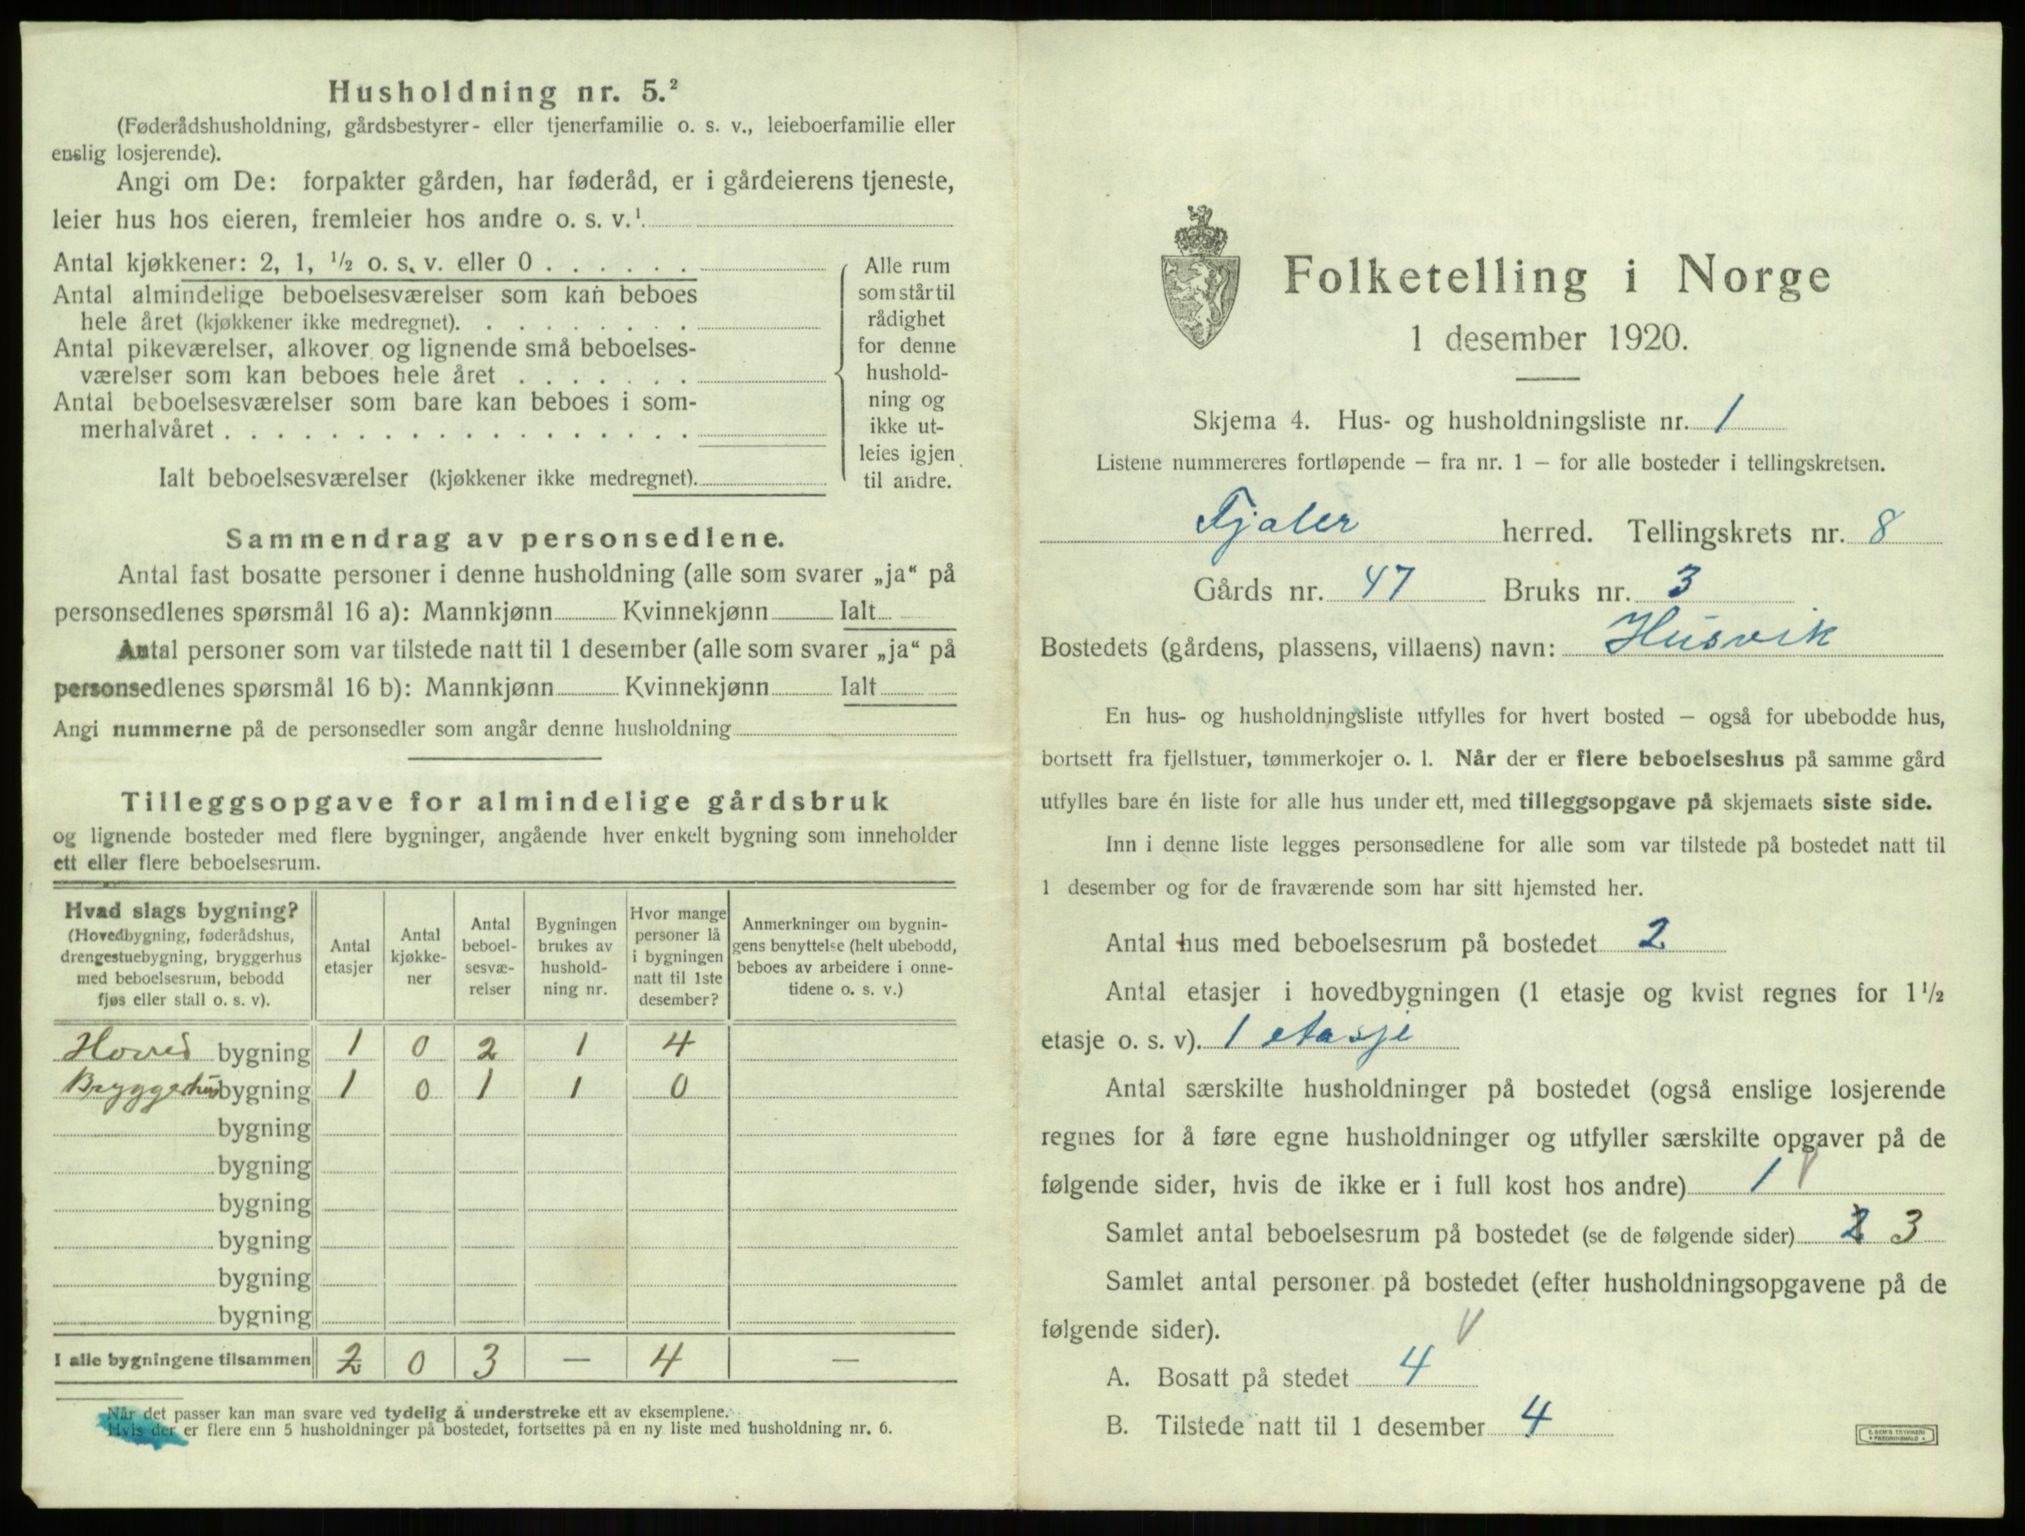 Husholdning nr. 5.²
(Føderådshusholdning, gårdsbestyrer- eller tjenerfamilie o. s. v., leieboerfamilie eller
enslig losjerende).
Angi om De: forpakter gården, har føderåd, er i gårdeierens tjeneste,
leier hus hos eieren, fremleier hos andre o. s. v.¹
Antal kjøkkener: 2, 1, ½ o. s. v. eller 0 . . . . . .
Antal almindelige beboelsesværelser som kan beboes
hele året (kjøkkener ikke medregnet). . . . . . . . .
Antal pikeværelser, alkover og lignende små beboelses-
værelser som kan beboes hele året . . . . . . .
Antal beboelsesværelser som bare kan beboes i som-
merhalvåret . . . . . . . . . . . . . . . . . .
Ialt beboelsesværelser (kjøkkener ikke medregnet).
Alle rum
som står til
rådighet
for denne
hushold-
ning og
ikke ut-
leies igjen
til andre.
Sammendrag av personsedlene.
Antal fast bosatte personer i denne husholdning (alle som svarer „ja“ på
personsedlenes spørsmål 16 a): Mannkjønn Kvinnekjønn Ialt
Antal personer som var tilstede natt til 1 desember (alle som svarer „ja“ på
personsedlenes spørsmål 16 b): Mannkjønn Kvinnekjønn Ialt
Angi nummerne på de personsedler som angår denne husholdning
Tilleggsopgave for almindelige gårdsbruk
og lignende bosteder med flere bygninger, angående hver enkelt bygning som inneholder
ett eller flere beboelsesrum.
Hvad slags bygning?
(Hovedbygning, føderådshus,
drengestuebygning, bryggerhus
med beboelsesrum, bebodd
fjøs eller stall o. s. v).
Antal
etasjer
Antal
kjøkke-
ner
Antal
beboel-
sesvæ-
relser
Bygningen
brukes av
hushold-
ning nr.
Hvor mange
personer lå
i bygningen
natt til 1ste
desember?
Anmerkninger om bygnin-
gens benyttelse (helt ubebodd,
beboes av arbeidere i onne-
tidene o. s. v.)
Hoved bygning 1 0 2 1 4
Bryggerhus bygning 1 0 1 1 0
bygning
bygning
bygning
bygning
bygning
bygning
I alle bygningene tilsammen 2 0 3 — 4 —
¹ Når det passer kan man svare ved tydelig å understreke ett av eksemplene.
² Hvis der er flere enn 5 husholdninger på bostedet, fortsettes på en ny liste med husholdning nr. 6.
Folketelling i Norge
1 desember 1920.
Skjema 4. Hus- og husholdningsliste nr. 1
Listene nummereres fortløpende — fra nr. 1 — for alle bosteder i tellingskretsen.
Fjaler herred. Tellingskrets nr. 8
Gårds nr. 47 Bruks nr. 3
Bostedets (gårdens, plassens, villaens) navn: Husvik
En hus- og husholdningsliste utfylles for hvert bosted — også for ubebodde hus,
bortsett fra fjellstuer, tømmerkojer o. l. Når der er flere beboelseshus på samme gård
utfylles bare én liste for alle hus under ett, med tilleggsopgave på skjemaets siste side.
Inn i denne liste legges personsedlene for alle som var tilstede på bostedet natt til
1 desember og for de fraværende som har sitt hjemsted her.
Antal hus med beboelsesrum på bostedet 2
Antal etasjer i hovedbygningen (1 etasje og kvist regnes for 1½
etasje o. s. v). 1 etasje
Antal særskilte husholdninger på bostedet (også enslige losjerende
regnes for å føre egne husholdninger og utfyller særskilte opgaver på de
følgende sider, hvis de ikke er i full kost hos andre) 1
Samlet antal beboelsesrum på bostedet (se de følgende sider) 2 3
Samlet antal personer på bostedet (efter husholdningsopgavene på de
følgende sider).
A. Bosatt på stedet 4
B. Tilstede natt til 1 desember 4